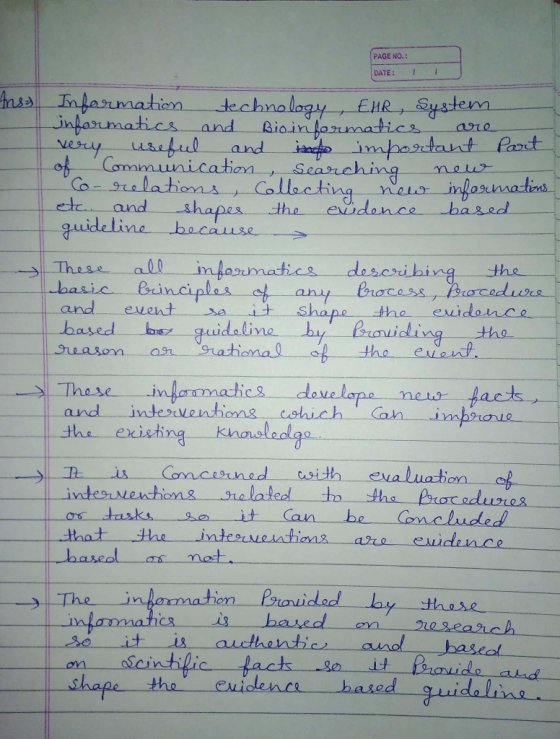 PAGE NO.:
DATE: / /
Ans⇒ Information technology, EHR, System
informatics and Bioinformatics are
very useful and important Part
of Communication, Searching new
Co-relations, Collecting new informations
etc. and shapes the evidence based
guideline because →
→ These all informatics describing the
basic Principles of any Process, Procedure
and event so it shape the evidence
based guideline by Providing the
reason or rational of the event.
→ These informatics develope new facts,
and interventions which Can improve
the existing Knowledge.
→ It is Concerned with evaluation of
interventions related to the Procedures
or tasks so it Can be Concluded
that the interventions are evidence
based or not.
→ The information Provided by these
informatics is based on research
so it is authentic and based
on Scintific facts so it Provide and
shape the evidence based guideline.